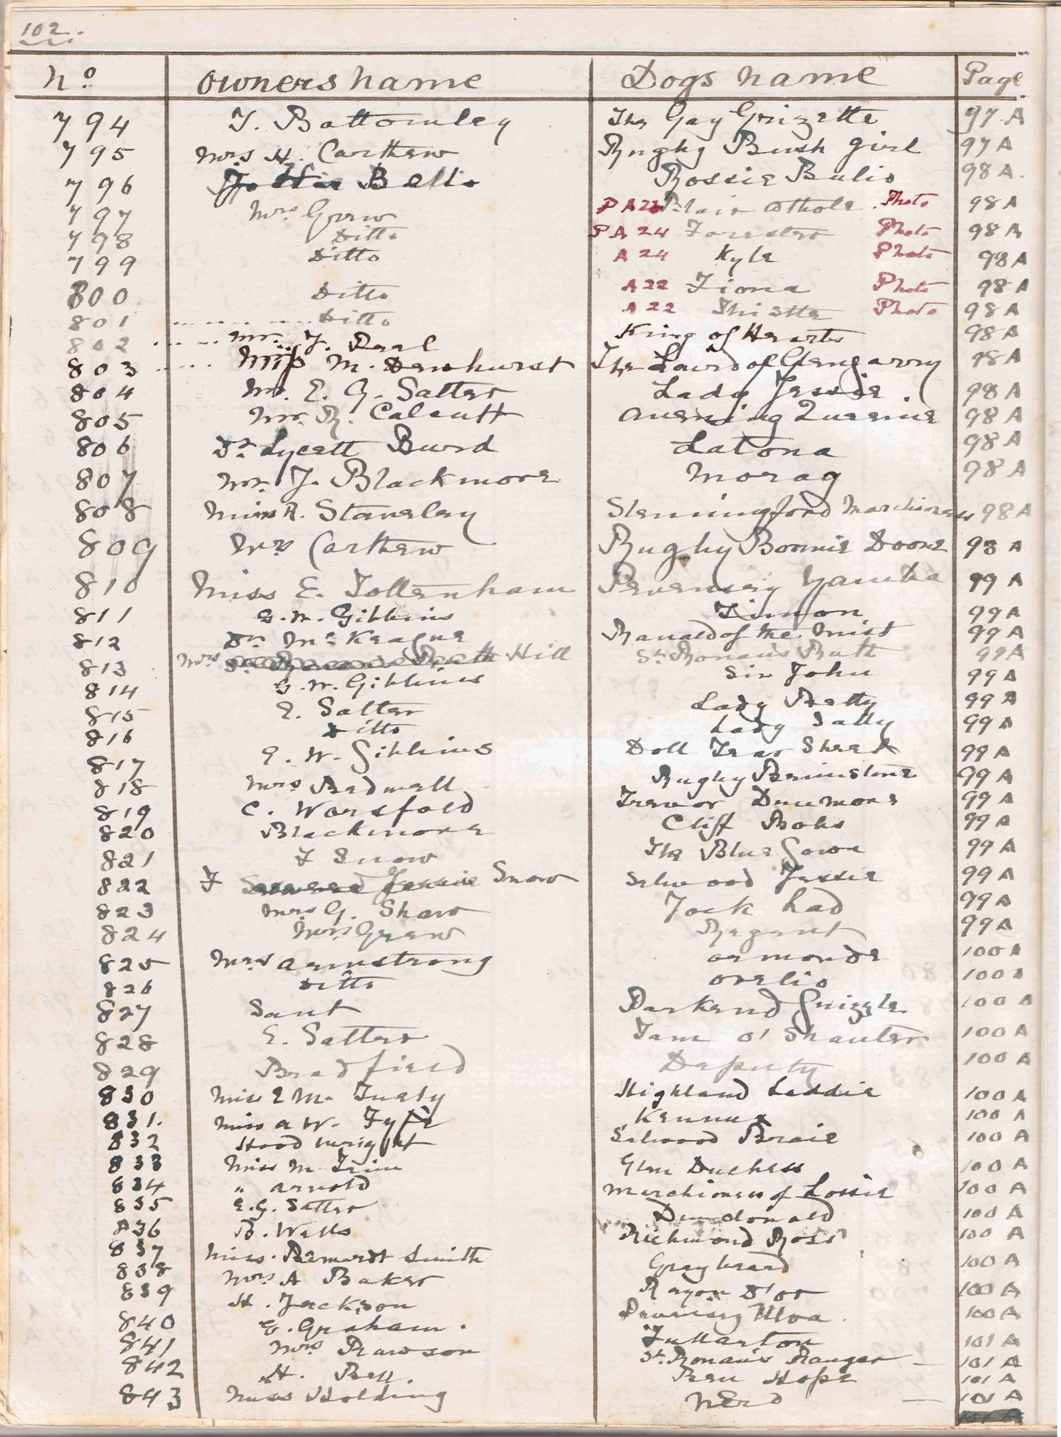 102.
No Owners name Dogs name Page
794 T. Bottomley The Gay Grizette 97 A
795 Mrs H. Carthew Rugby Bush Girl 97 A
796 Bello Rossie Bulio 98 A.
797 Mrs Grew PA 23 Blair Athole Photo 98 A
798 Ditto PA 24 Forester Photo 98 A
799 Ditto A 24 Kyle Photo 98 A
800 Ditto A 22 Fiona Photo 98 A
801 Ditto A 22 Photo 98 A
802 Mr. J. King of Hearts 98 A
803 Miss M. Dewhurst The Laird of Glengarry 98 A
804 Mr. E. G. Salter Lady Jessie 98 A
805 Mr. R. Calcutt Avening Queenie 98 A
806 Dr Lycett Burd Latona 98 A
807 Mr. J. Blackmore Morag 98 A
808 Miss R. Staveley Slenningford Marchioness 98 A
809 Mrs Carthew Rugby Bonnie Doone 98 A
810 Miss E. Tottenham Pevensey 99 A
811 G. W. Gibbins Timon 99 A
812 Dr Mc Keague Ranald of the Mist 99 A
813 Mrs Hill St Ronan's Ruth 99 A
814 G. W. Gibbins Sir John 99 A
815 E. Salter Lady Betty 99 A
816 Ditto Lady Sally 99 A
817 E. W. Gibbins Doll Tear Sheet 99 A
818 Mrs Badwell Rugby Brimstone 99 A
819 C. Worsfold Trevor 99 A
820 Blackmore Cliff Bobs 99 A
821 F Snow The Blue Gown 99 A
822 F Snow Selwood Jessie 99 A
823 Mrs G. Shaw Jock Lad 99 A
824 Mrs Grew Regent 99 A
825 Mrs Armstrong Ormonde 100 A
826 Ditto Orelio 100 A
827 Sant Parkend Grizzle 100 A
828 E. Salter Tam O' Shanter 100 A
829 Bradfield Deputy 100 A
830 Miss E M. Highland Laddie 100 A
831. Miss A W. Fyfe Kennux 100 A
832 Hood Wright Selwood Braie 100 A
833 Miss M. Glen Duchess 100 A
834 " Arnold Marchioness of Lossie 100 A
835 E. G. Salter Dundonald 100 A
836 B. Wells Richmond Ross 100 A
837 Miss. Smith Greybeard 100 A
838 Mrs A Baker Rayon D'or 100 A
839 H. Jackson 100 A
840 G. Graham. Fullarton 101 A
841 Mrs Rawson St. Ronan's Ranger 101 A
842 H. Bell. Ben Hope 101 A
843 Miss Holding Nero 101 A